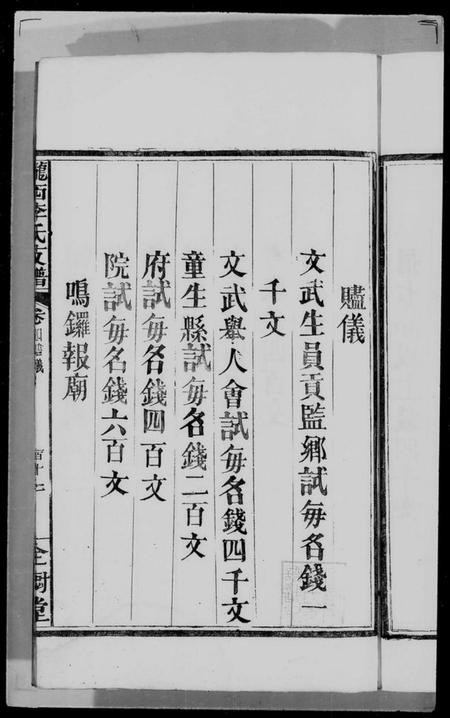 贐儀
文武生員貢監鄉試每名錢一
千文
文武舉人會試每名錢四千文
童生縣試每名錢二百文
府試每名錢四百文
院試每名錢六百文
鳴鑼報廟
隴西李氏支譜 卷四贐儀